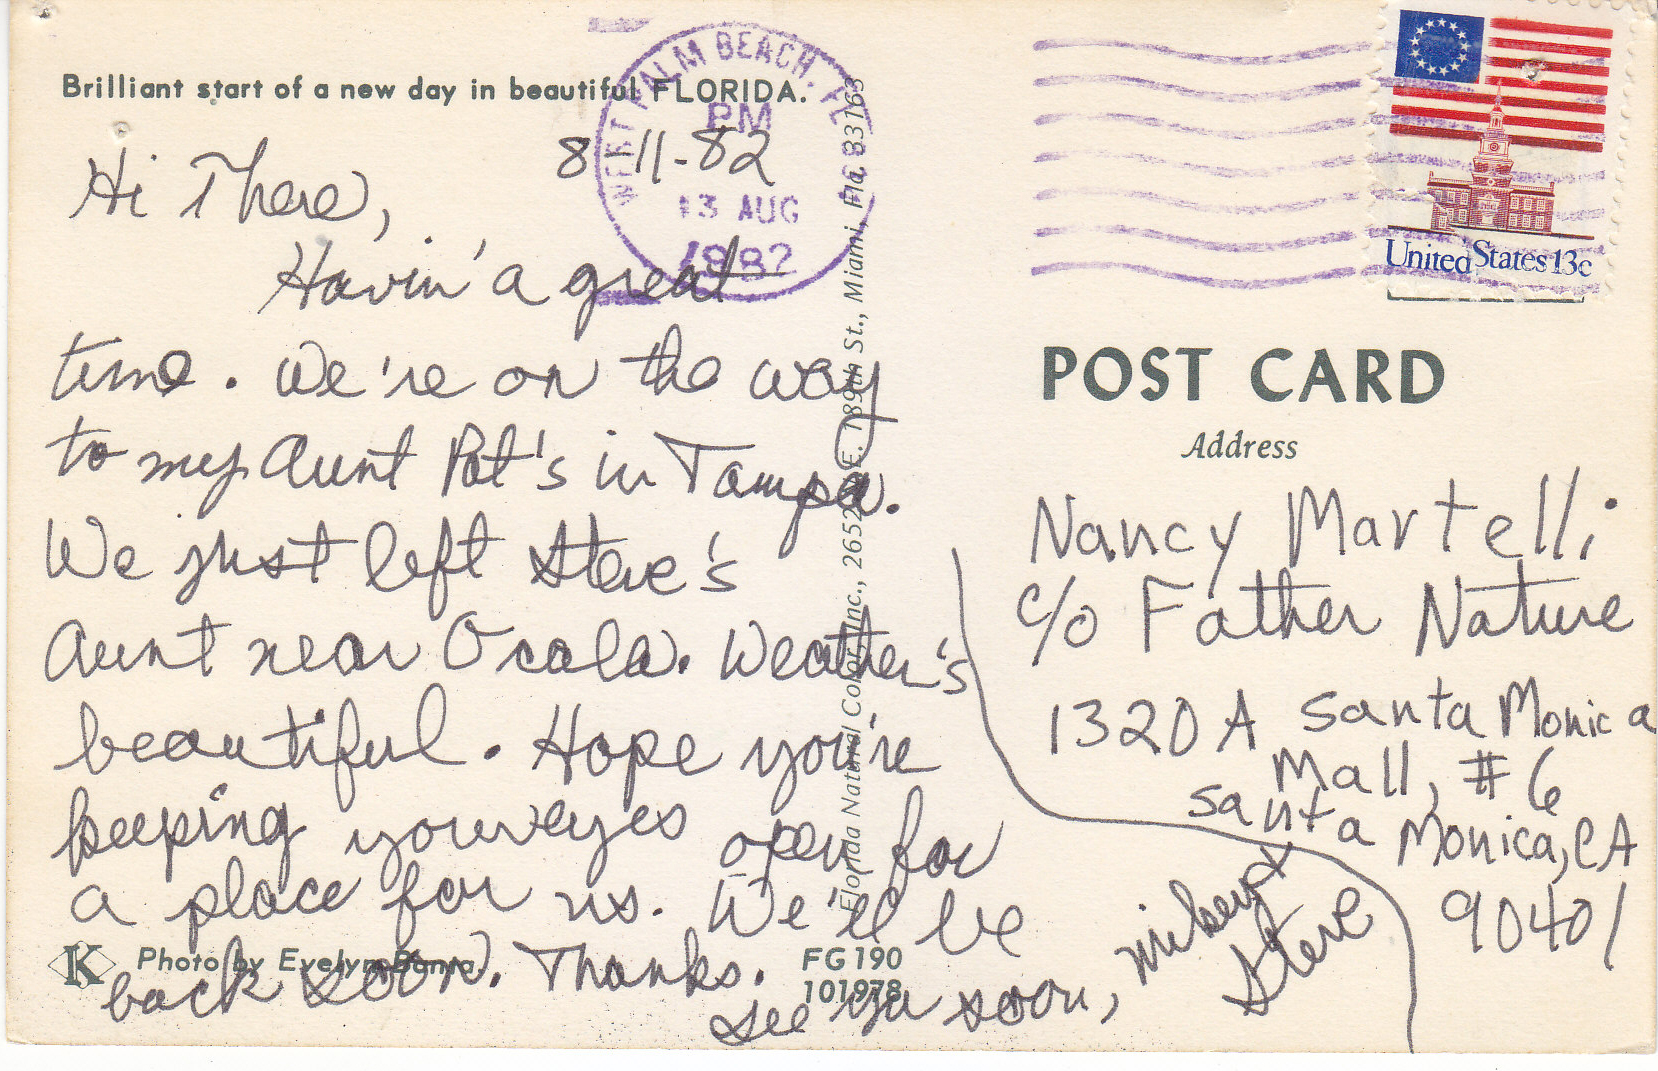 Brilliant start of a new day in beautiful FLORIDA.
WEST PALM BEACH, FL
PM
13 AUG
1982
8-11-82
Hi There,
Havin' a great
time. We're on the way
to my Aunt Pat's in Tampa.
We just left Steve's
Aunt near Ocala. Weather's
beautiful. Hope you're
keeping your eyes open for
a place for us. We'll be
back soon. Thanks.
See ya soon,
&
Steve
K Photo by Evelyn
FG 190
101978
Florida Natural Color, Inc., 2652 N.E. 189th St., Miami, Fla. 33163
United States 13c
POST CARD
Address
Nancy Martelli
c/o Father Nature
1320 A Santa Monica
Mall, #6
Santa Monica, CA
90401